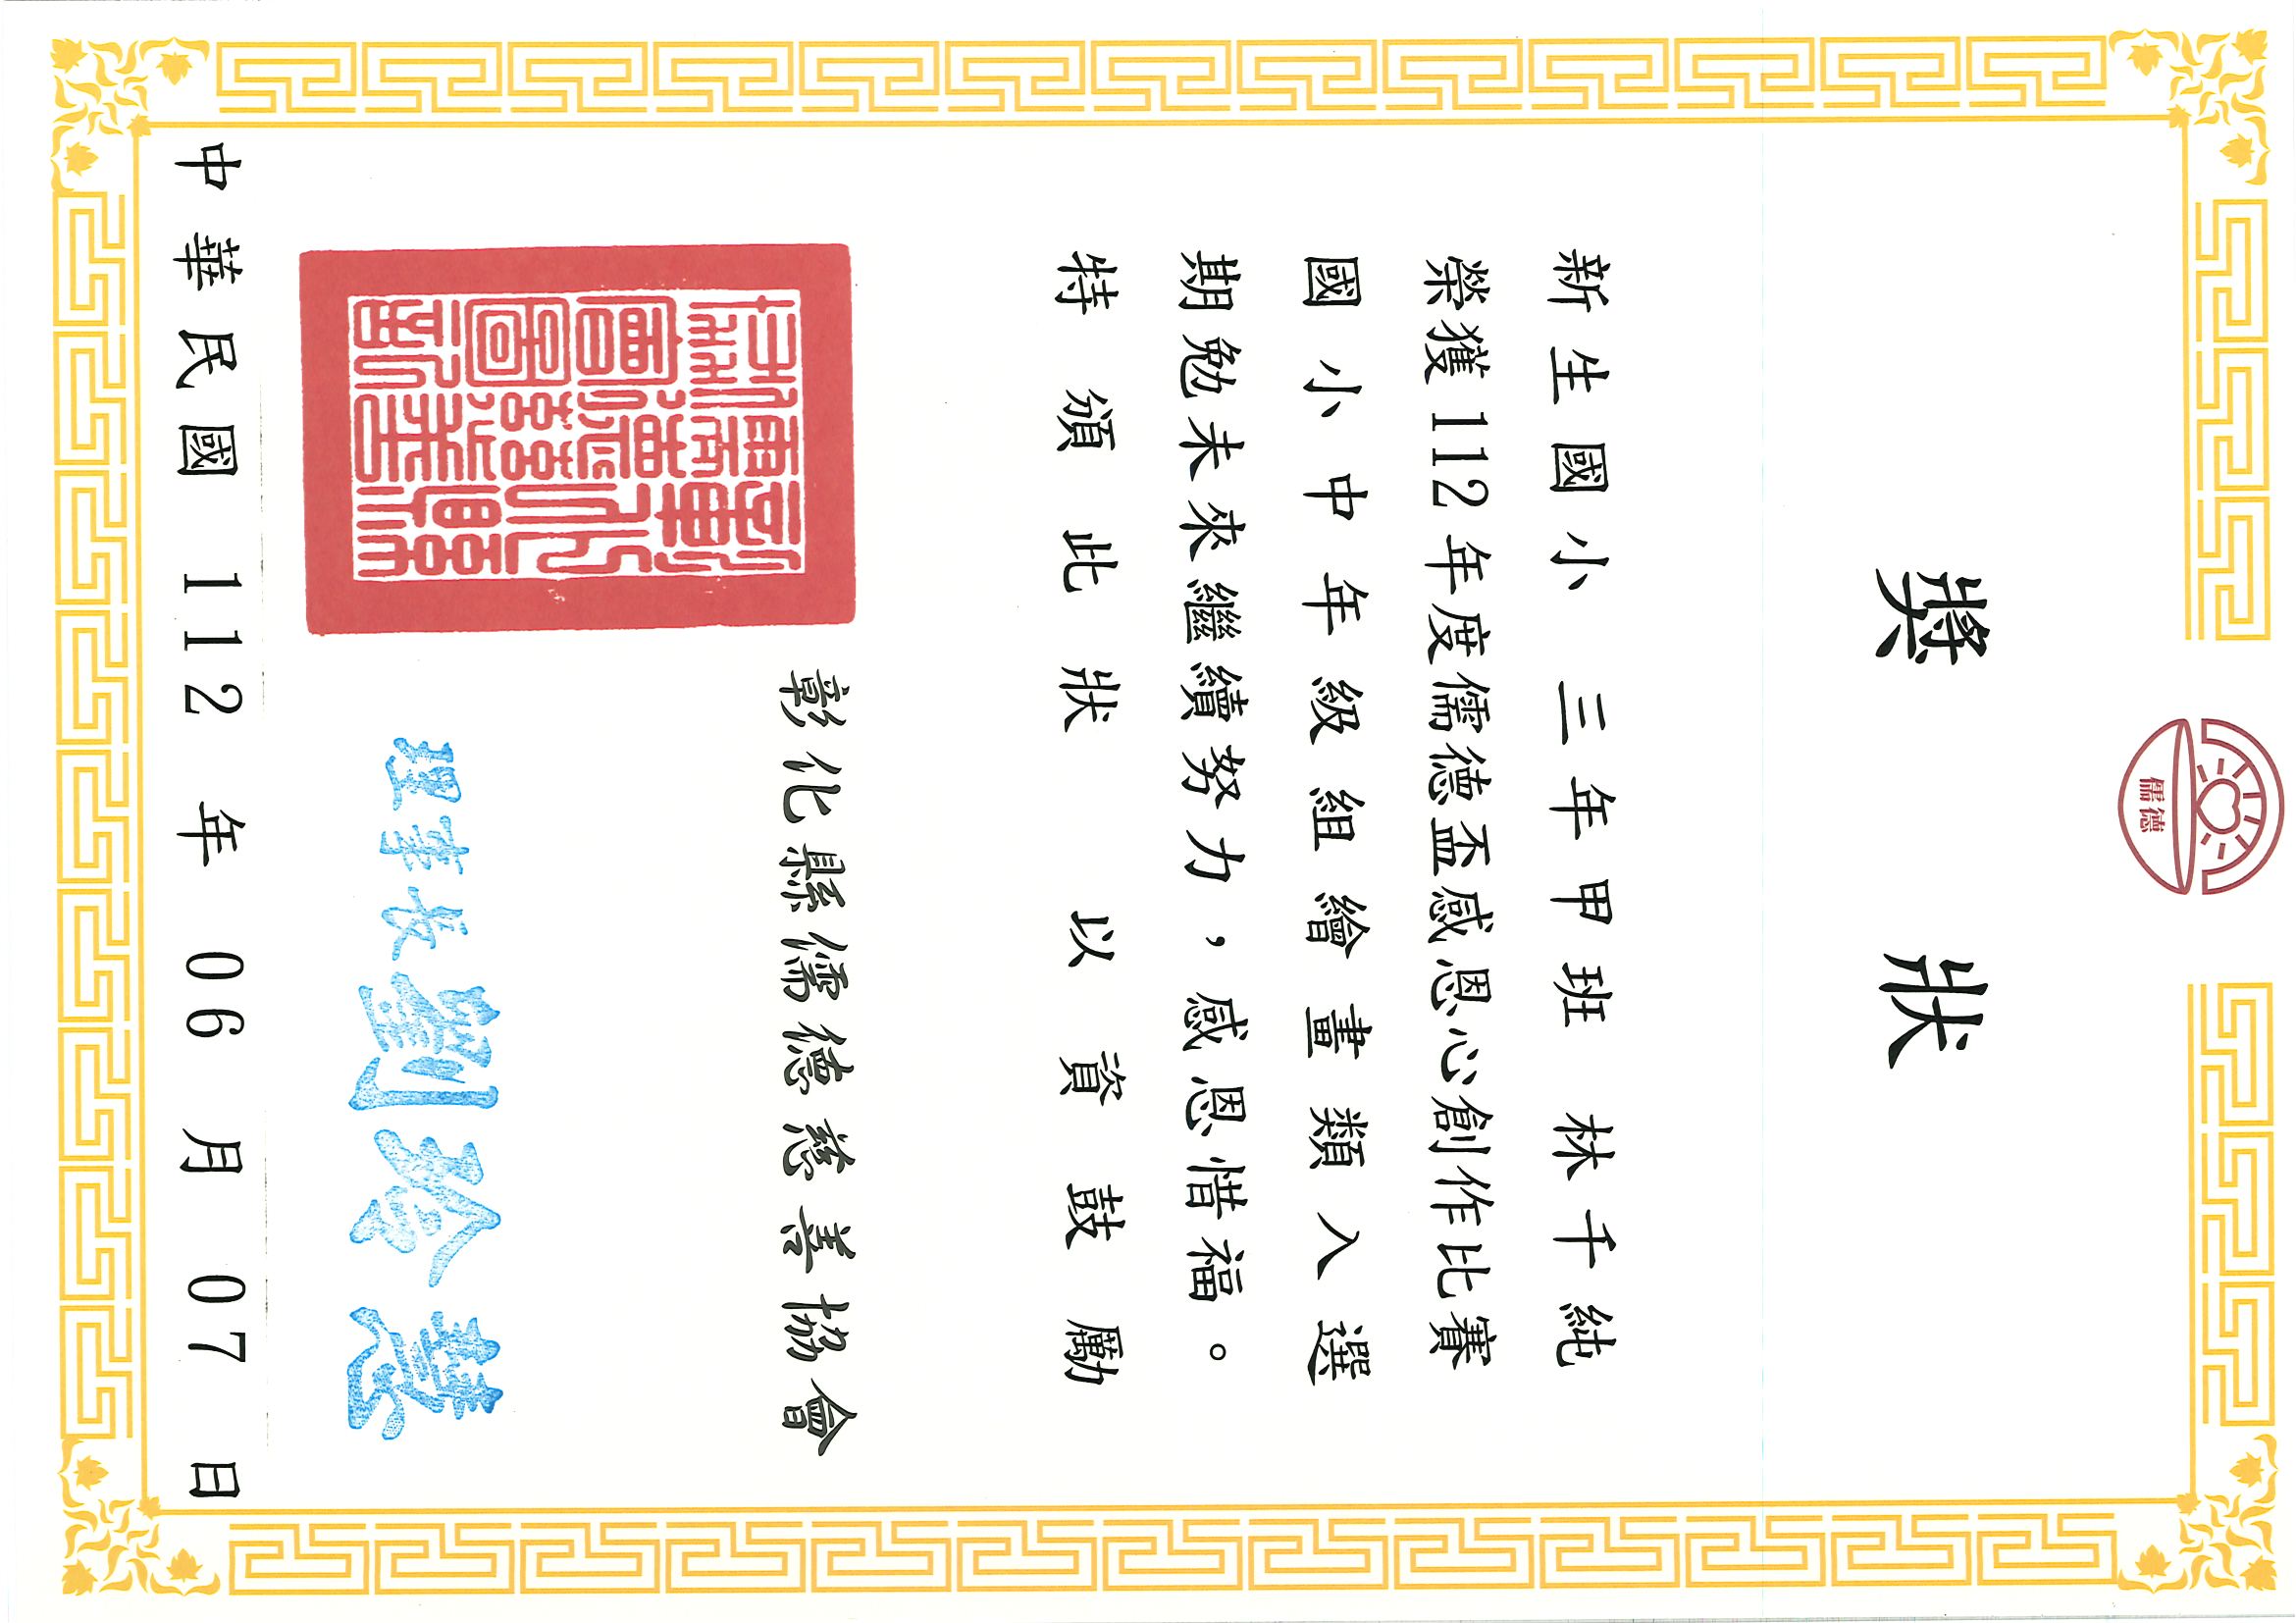 儒德
獎狀
新生國小 三年甲班 林千純
榮獲112年度儒德盃感恩心創作比賽
國小中年級組繪畫類入選
期勉未來繼續努力，感恩惜福。
特頒此狀 以資鼓勵
彰化縣儒德慈善協會
理事長 劉玲慧
中華民國 112 年 06 月 07 日